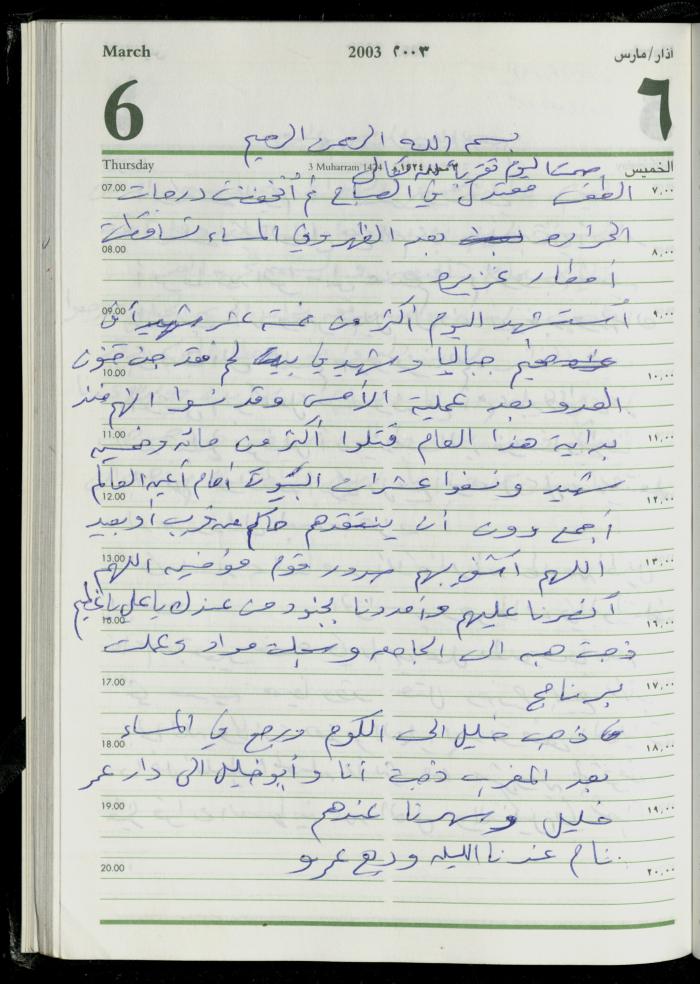 March 2003 ٢٠٠٣ آذار/مارس
6 ٦
بسم الله الرحمن الرحيم
Thursday 3 Muharram 1424 الخميس
صمت اليوم تقربا لله تعالى
07.00 الطقس معتدل في الصباح ثم أنخفضت درجات ٧,٠٠
الحراره بعد الظهر وفي المساء تساقطت
08.00 ٨,٠٠
أمطار غزيره
09.00 أستشهد اليوم أكثر من خمسة عشر شهيد ٩,٠٠
مخيم جباليا وشهيد لم فقد جن جنون
10.00 ١٠,٠٠
العدو بعد عملية الأمس وقد نسوا انهم منذ
11.00 بداية هذا العام قتلوا أكثر من مائه وخمسين ١١,٠٠
شهيد ونسفوا عشرات البيوت أمام أعين العالم
12.00 ١٢,٠٠
أجمع دون أن ينتقدهم حاكم من قريب أو بعيد
13.00 اللهم اشف بهم صدور قوم مؤمنين اللهم ١٣,٠٠
أنصرنا عليهم وأمددنا بجنود من عندك يا علي يا عظيم
16.00 ١٦,٠٠
ذهبت هبه الى الجامعه وسجلت مواد وعملت
17.00 برنامج ١٧,٠٠
ذهب خليل الى الكوم ورجع في المساء
18.00 ١٨,٠٠
بعد المغرب ذهبت أنا وأبو خليل الى دار عمر
19.00 خليل وسهرنا عندهم ١٩,٠٠
نام عندنا الليله وديع عمرو
20.00 ٢٠,٠٠